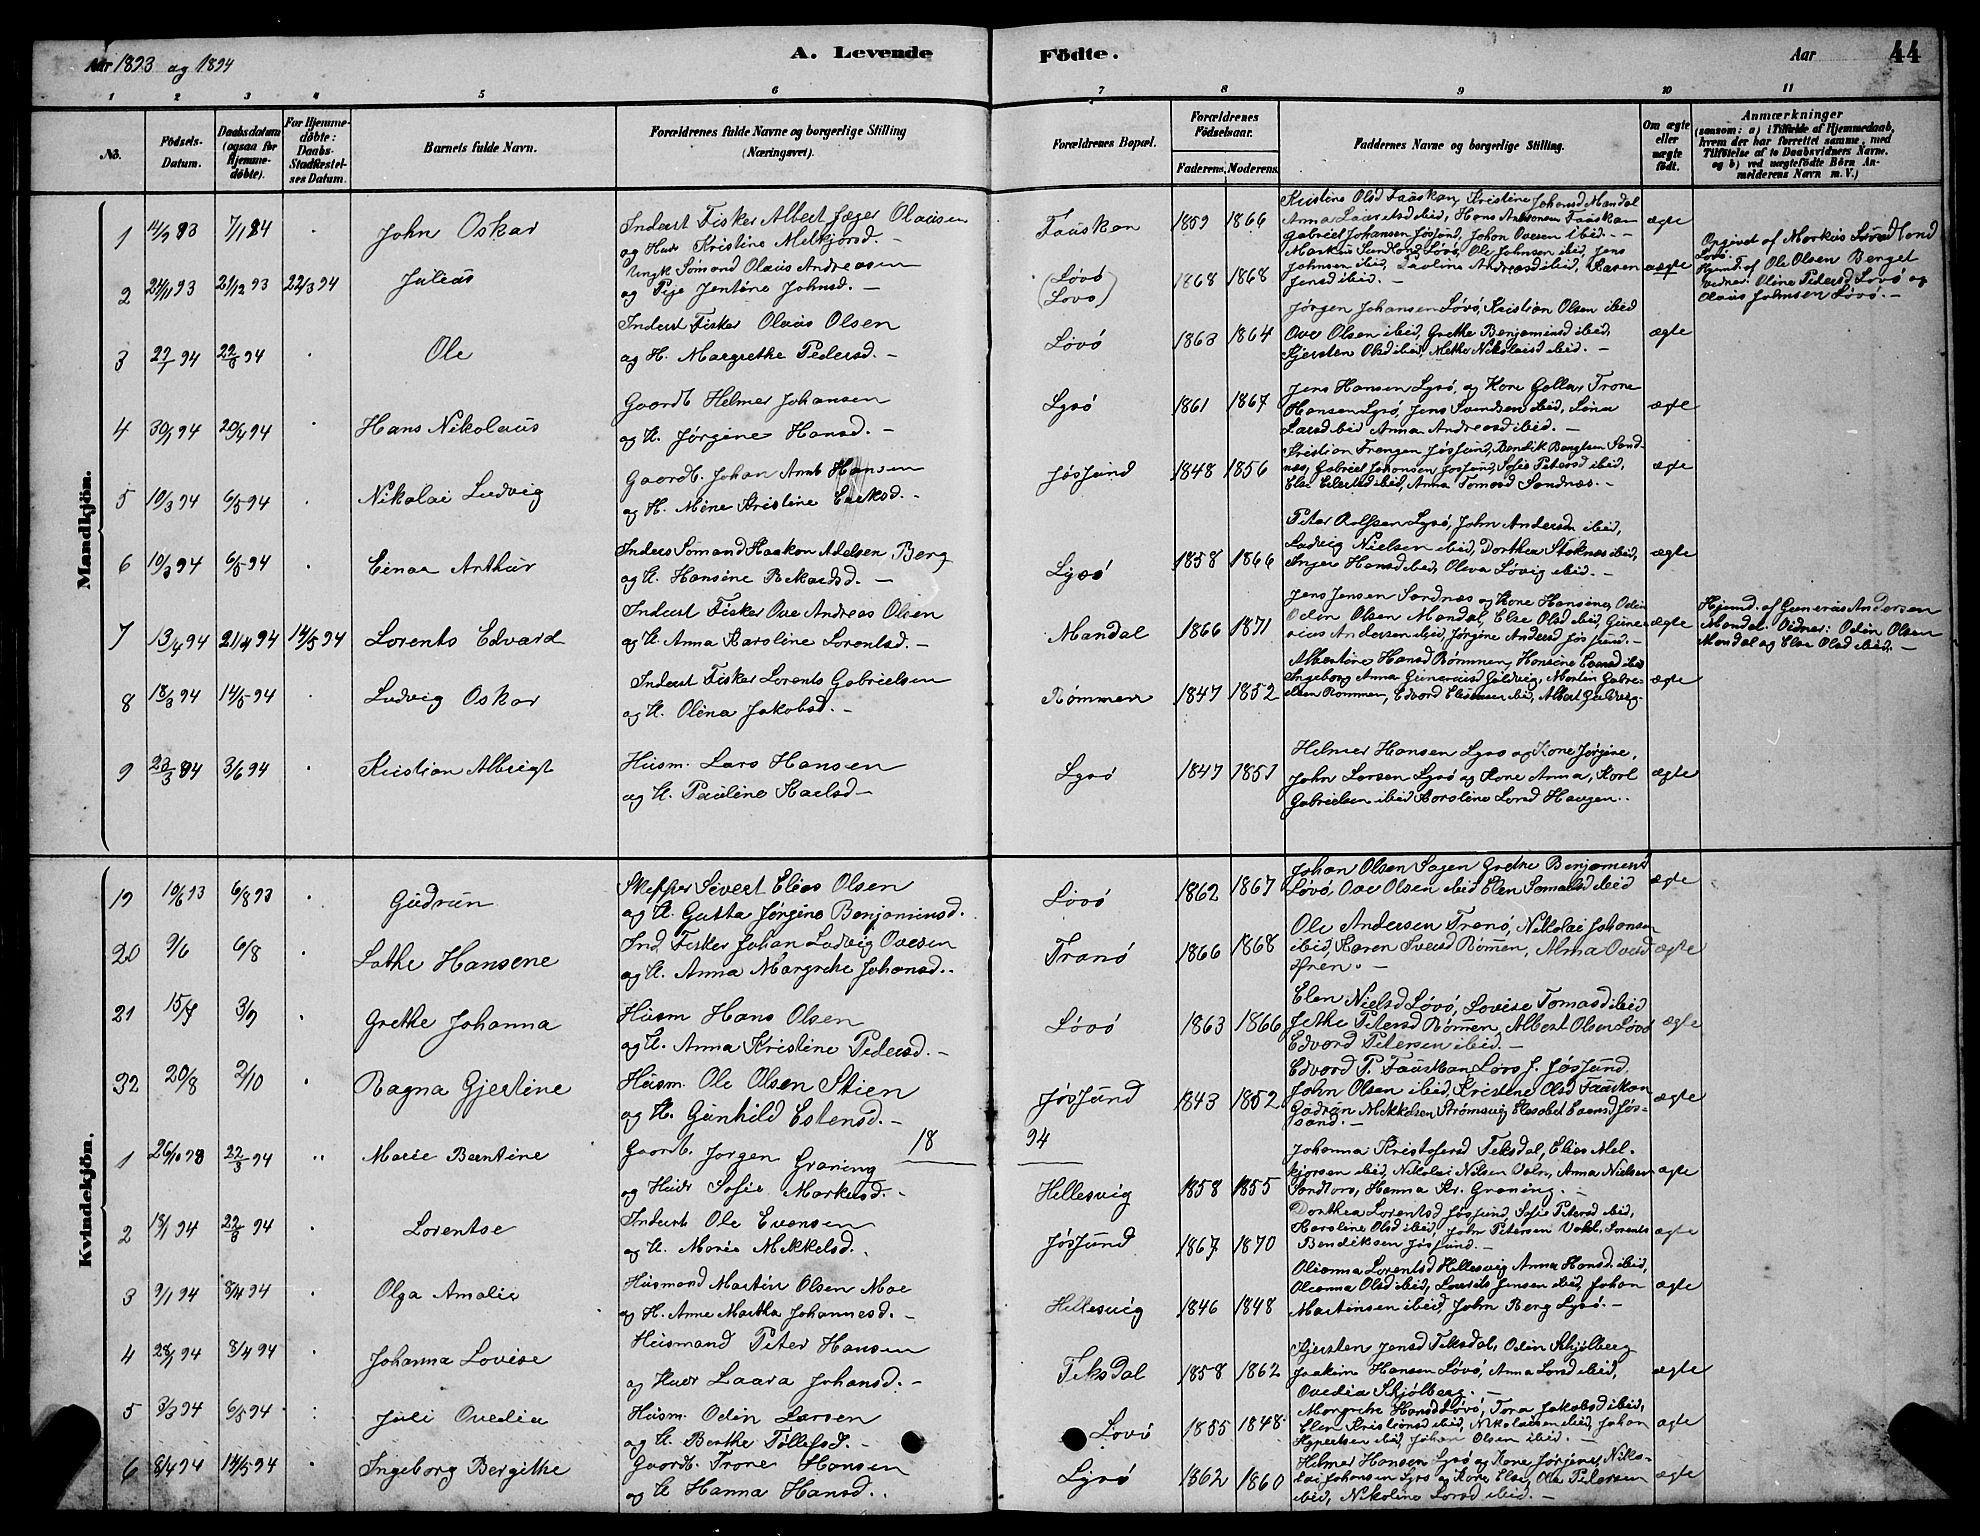 Aar 1893 og 1894
A. Levende
Födte.
Aar
44
1 2 3 4 5 6 7 8 9 10 11
No.
Födsels-Datum.
Daabsdatum (ogsaa for Hjemme-döbte).
For Hjemme-döbte: Daabs-Stadfæstel-ses Datum.
Barnets fulde Navn.
Forældrenes fulde Navne og borgerlige Stilling (Næringsvei).
Forældrenes Bopæl.
Forældrenes Födselsaar.
Faderens.
Moderens.
Faddernes Navne og borgerlige Stilling.
Om ægte eller uægte födt.
Anmærkninger
(saasom: a) i Tilfælde af Hjemmedaab, hvem der har forrettet samme, med Tilföielse af to Daabsvidners Navne, og b) ved uægtefödte Börn Anmelderens Navn m. V.)
Mandkjön.
1 14/9 93 7/1 84 John Oskar
Inderst Fisker Albert Jæger Olausen
og Hustr Kristine Melkjorsd. -
Fauskan 1859 1866
Kristine Olsd Fauskan, Kristine Johansd Mandal
Anna Lauretsd ibid, Hans Antonsen Fauskan
Gabriel Johansen Jøssund, Johan Ovesen ibid. -
ægte
2 24/11 93 21/12 93 22/3 94 Julius
Ungk. Sømand Olaus Andreasen
og Pige Jentine Johnsd. -
(Løvø Løvø) 1868 1868
Markus Sandland Løvø, Ole Johnsen ibid, Jens
Johnsen ibid, Pauline Andreasd ibid, Karen
Jensd ibid. -
uægte
Opgivet af Markus Sandland
Løvø.
Hjemd. af Ole Olsen Berget
Vidner: Oline Pedersd Løvø og
Olaus Johnsen Løvø. -
3 27/1 94 22/3 94 Ole
Inderst Fisker Olaus Olsen
og H. Margrethe Pedersd. -
Løvø 1863 1864
Jørgen Johansen Løvø, Kristian Olsen ibid
Ove Olsen ibid, Grethe Benjaminsd ibid,
Kjersten Olsd ibid, Methe Nikolaisd ibid. -
ægte
4 30/1 94 20/4 94 Hans Nikolaus
Gaardb. Helmer Johansen
og H. Jørgine Hansd. -
Lysø 1861 1867
Jens Hansen Lysø, og Kone Trone
Hansen Lysø, Jens ibid, Lina
Larsd ibid Anna Andreasd ibid. -
ægte
5 10/3 94 6/5 94 Nikolai Ludvig
Gaardb. Johan Arnt Hansen
og H. Mine Kristine Eriksd. -
Jøssund 1848 1856
Kristian Frengen Jøssund, Bendik Bengtsen Sand-
næs, Gabriel Johansen Jøssund, Sofie Petersd ibid,
Else Eilertsd ibid, Anna Tomasd Sandnæs. -
ægte
6 10/3 94 6/5 94 Einar Arthur
Inders Sømand Haakon Adelsen Berg
og H. Hansine Rikardsd. -
Lysø 1858 1866
Peter Rolfsen Lysø, John Andersen ibid,
Ludvig Nielsen ibid, Dorthea Stoknes ibid,
Inger Hansd ibid, Oleva Løvig ibid. -
ægte
7 13/4 94 21/4 94 14/5 94 Lorents Edvard
Inderst Fisker Ove Andreas Olsen
og H. Anna Karoline Lorentsd. -
Mandal 1866 1871
Jens Jensen Sandnæs og Kone Hansine, Odin
Odin Olsen Mandal, Else Olsd ibid, Gune-
rius Andersen ibid, Jørgine Andersd Jøssund. -
ægte
Hjemd. af Gunerius Andersen
Mandal. Vidner: Odin Olsen
Mandal og Else Olsd ibid. -
8 18/3 94 14/5 94 Ludvig Oskar
Inderst Fisker Lorents Gabrielsen
og H. Olina Jakobsd. -
Rømmen 1847 1852
Albertine Hansd Rømmen, Hansine ibid
Ingeborg Anna Guneriusd Guldvig, Martin Gabri-
elsen Rømmen, Edvard ibid, Albert Guldvig -
ægte
9 23/3 94 3/6 94 Kristian Albrigt
Husm. Lars Hansen
og H. Pauline Karlsd -
Lysø 1847 1851
Helmer Hansen Lysø og Kone Jørgine,
John Larsen Lysø og Kone Anna, Karl
Gabrielsen ibid Karoline Larsd Haugen..
ægte
Kvindekjön.
19 10/6 93 6/8 93 Gudrun
Skipper Sivert Elias Olsen
og H. Gutta Jørgine Benjaminsd.
Løvø 1862 1867
Johan Olsen Sagen Grethe Benjaminsd
Løvø, Ove Olsen ibid Elen ibid
ægte
20 9/6 6/8 Lathe Hansene
Ind. Fisker Johan Ludvig Ovesen
og H. Anna Margrethe Johansd..
Tranø 1866 1868
Ole Andersen Tranø, Nikolai Johansen
ibid, Karen Rømmen, Alma Ovesd
Hren. -
ægte
21 15/7 3/9 Grethe Johanna
Husm Hans Olsen
og H. Anna Kristine Pedersd. -
Løvø 1863 1866
Elen Nielsd Løvø, Lovise Tomasd ibid
Jethe Petersd Rømmen, Albert Olsen Løvø
Edvard Petersen ibid. -
ægte
32 20/8 2/10 Ragna Gjertine
Husm. Ole Olsen Stien
og H. Gunhild Estensd. -
Jøssund 1843 1852
Edvard P. Fauskan Lars J. Jøssund,
John Olsen ibid, Kristine Olsd Fauskan
Gudrun Mikkelsen Strømsvig Elesabet Evensd Jøs-
sund. -
ægte
18 94
1 26/10 93 22/3 94 Marie Berntine
Gaardb. Jørgen Graning
og Hustr Sofie Markusd. -
Hellesvig 1858 1855
Johanna Kristofersd Teksdal, Elias Mel-
kjorsen ibid, Nikolai Nilsen, Anna Nielsen
Hanna Kr. Graning. -
ægte
2 18/1 94 22/3 94 Lorentse
Inderst Ole Evensen
og H. Marie Mikkelsd..
Jøssund 1867 1870
Dorthea Lorentsd Jøssund Sofie Petersd ibid,
Karoline Olsd ibid, John Petersen, Lorents
Bendiksen Jøssund. -
ægte
3 9/1 94 8/4 94 Olga Amalie
Husmand Martin Olsen Moe
og H. Anne Martha Johannesd. -
Hellesvig 1846 1848
Olianna Lorentsd Hellesvig Anna Hansd ibid,
Olianna Olsd ibid, Laurits Jensen ibid, Johan
Martinsen ibid, John Berg Lysø. -
ægte
4 28/1 94 8/4 94 Johanna Lovise
Husmand Peter Hansen
og Hustr Laura Johansd. -
Teksdal 1858 1862
Kjersten Jensd Teksdal, Odin Skjølberg
Joakim Hansen Løvø, Anna Larsd ibid,
Ovedia Skjølberg. -
ægte
5 3/3 94 6/5 94 Juli Ovedia
Husm. Odin Larsen
og H. Berthe Tollefsd. -
Løvø 1855 1848
Margrethe Hansd Løvø, Tora Jakobsd ibid,
Elen Kristiansd ibid, Nikolaisen ibid, Johan
ibid, Johan Olsen ibid. -
ægte
6 8/4 94 14/5 94 Ingeborg Bergithe
Gaardb. Trone Hansen
og H Hanna Hansd..
Lysø 1862 1860
Helmer Hansen Lysø og Kone Jørgine, Niko-
lai Johansen Lysø og Kone Else, Ole Petersen
ibid, Nikoline Larsd ibid. -
ægte